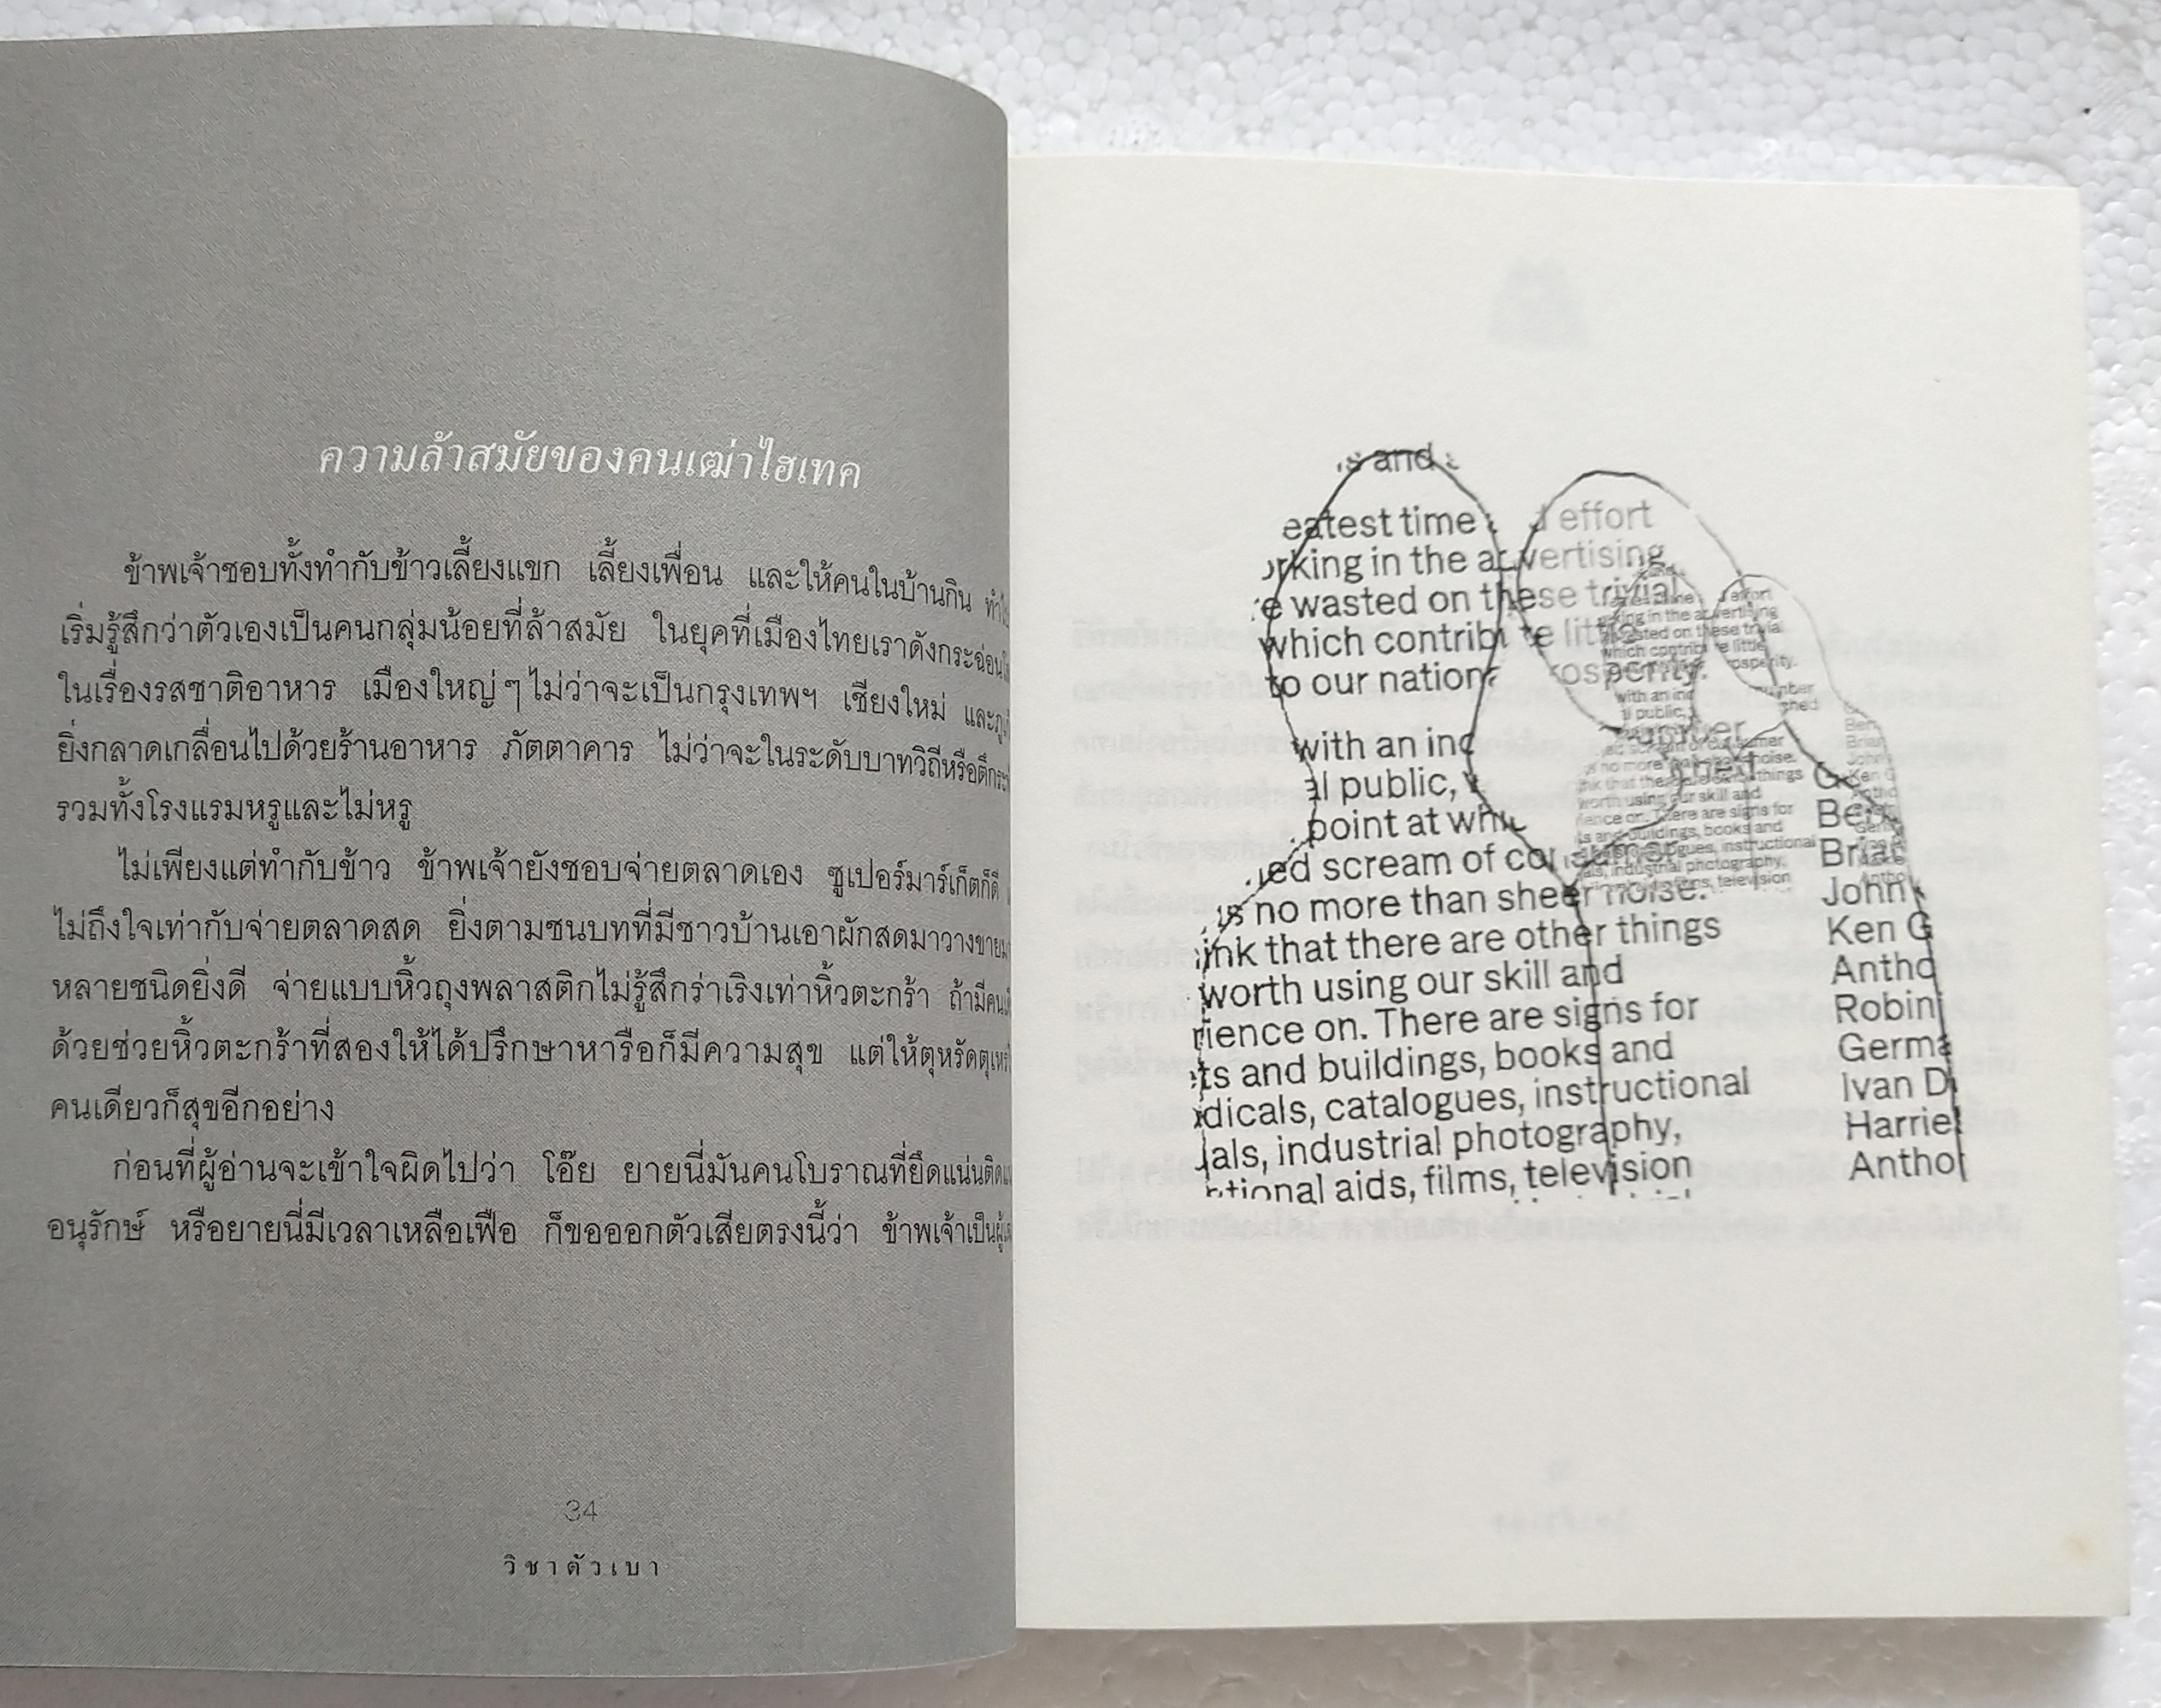 ความล้าสมัยของคนเฒ่าไฮเทค
ข้าพเจ้าชอบทั้งทำกับข้าวเลี้ยงแขก เลี้ยงเพื่อน และให้คนในบ้านกิน
เริ่มรู้สึกว่าตัวเองเป็นคนกลุ่มน้อยที่ล้าสมัย ในยุคที่เมืองไทยเราดังกระฉ่อน
ในเรื่องรสชาติอาหาร เมืองใหญ่ๆ ไม่ว่าจะเป็นกรุงเทพฯ เชียงใหม่
ยิ่งกลาดเกลื่อนไปด้วยร้านอาหาร ภัตตาคาร ไม่ว่าจะในระดับบาทวิถีหรือ
รวมทั้งโรงแรมหรูและไม่หรู
ไม่เพียงแต่ทำกับข้าว ข้าพเจ้ายังชอบจ่ายตลาดเอง ซูเปอร์มาร์เก็ตก็ดี
ไม่ถึงใจเท่ากับจ่ายตลาดสด ยิ่งตามชนบทที่มีชาวบ้านเอาผักสดมาวางขาย
หลายชนิดยิ่งดี จ่ายแบบหิ้วถุงพลาสติกไม่รู้สึกร่าเริงเท่าหิ้วตะกร้า ถ้ามีคน
ด้วยช่วยหิ้วตะกร้าที่สองให้ได้ปรึกษาหารือก็มีความสุข แต่ให้ตุหรัดตุเหร่
คนเดียวก็สุขอีกอย่าง
ก่อนที่ผู้อ่านจะเข้าใจผิดไปว่า โอ๊ย ยายนี่มันคนโบราณที่ยึดแน่นติด
อนุรักษ์ หรือยายนี่มีเวลาเหลือเฟือ ก็ขอออกตัวเสียตรงนี้ว่า ข้าพเจ้าเป็น
34
วิชาตัวเบา
s and
eatest time d effort
rking in the advertising
e wasted on these trivial
which contribute little
to our nation rosperity.
with an ind
al public,
point at whic
ed scream of consumer
is no more than sheer noise.
ink that there are other things
worth using our skill and
rience on. There are signs for
ts and buildings, books and
dicals, catalogues, instructional
als, industrial photography,
tional aids, films, television
Brian
John
Ken G
Antho
Robin
Germa
Ivan D
Harrie
Antho